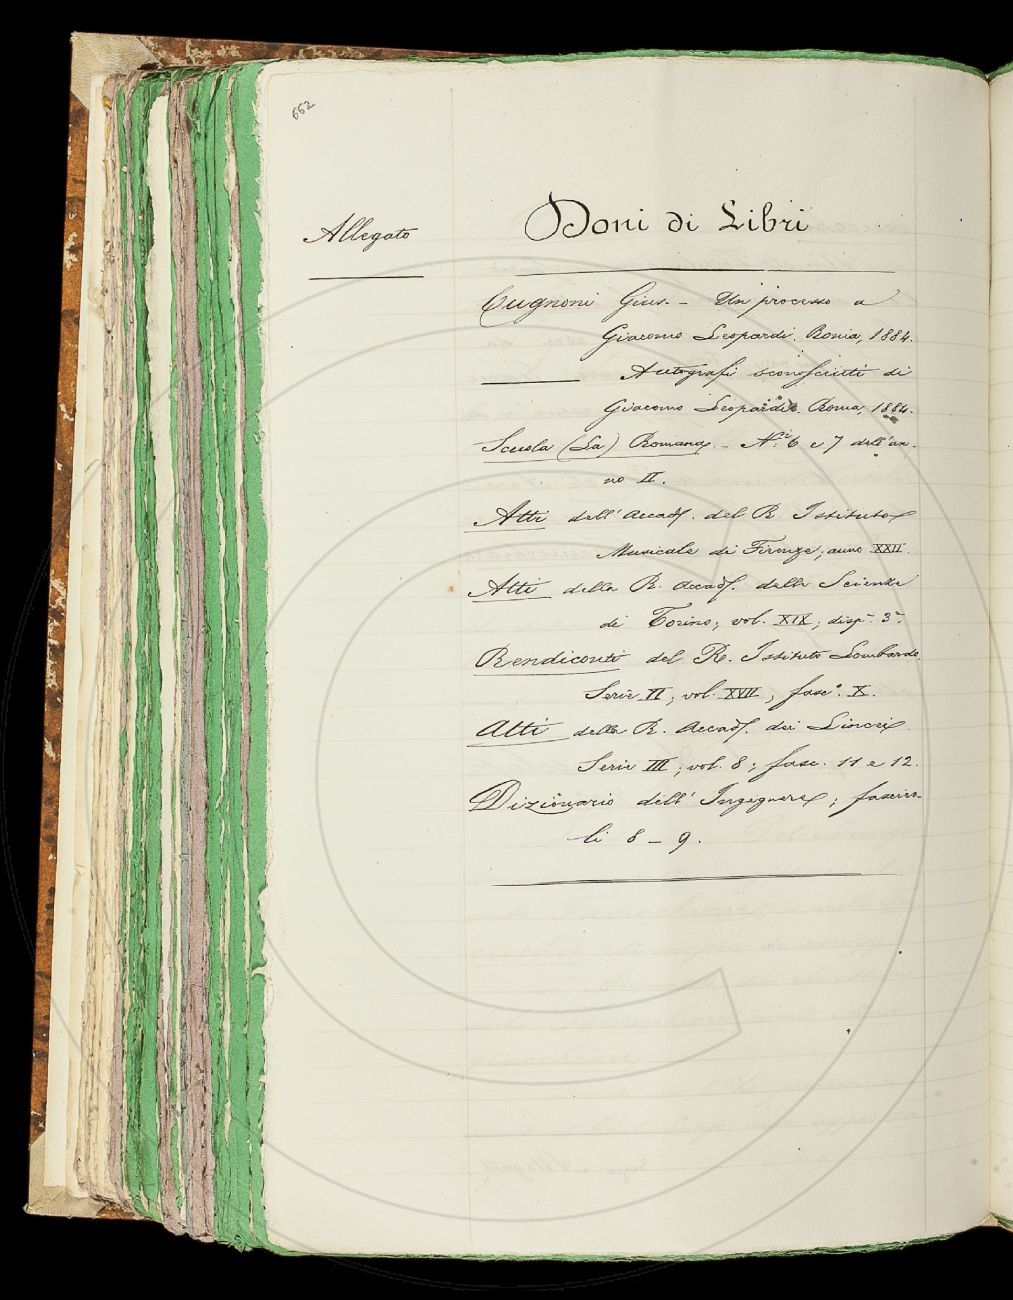 662
Allegato
Doni di Libri
Cugnoni Gius. - Un processo a
Giacomo Leopardi. Roma, 1884.
——— Autografi sconosciuti di
Giacomo Leopardi. Roma, 1884.
Scuola (La) Romana. - N.i 6 e 7 dell'an-
no II.
Atti dell'Accad. del R. Istituto
Musicale di Firenze; anno XXII.
Atti della R. Accad. delle Scienze
di Torino; vol. XIX; disp. 3a.
Rendiconti del R. Istituto Lombardo
Serie II; vol. XVII; fasc.o X.
Atti della R. Accad. dei Lincei
Serie III; vol. 8; fasc. 11 e 12.
Dizionario dell'Ingegnere; fascico-
li 8 - 9.